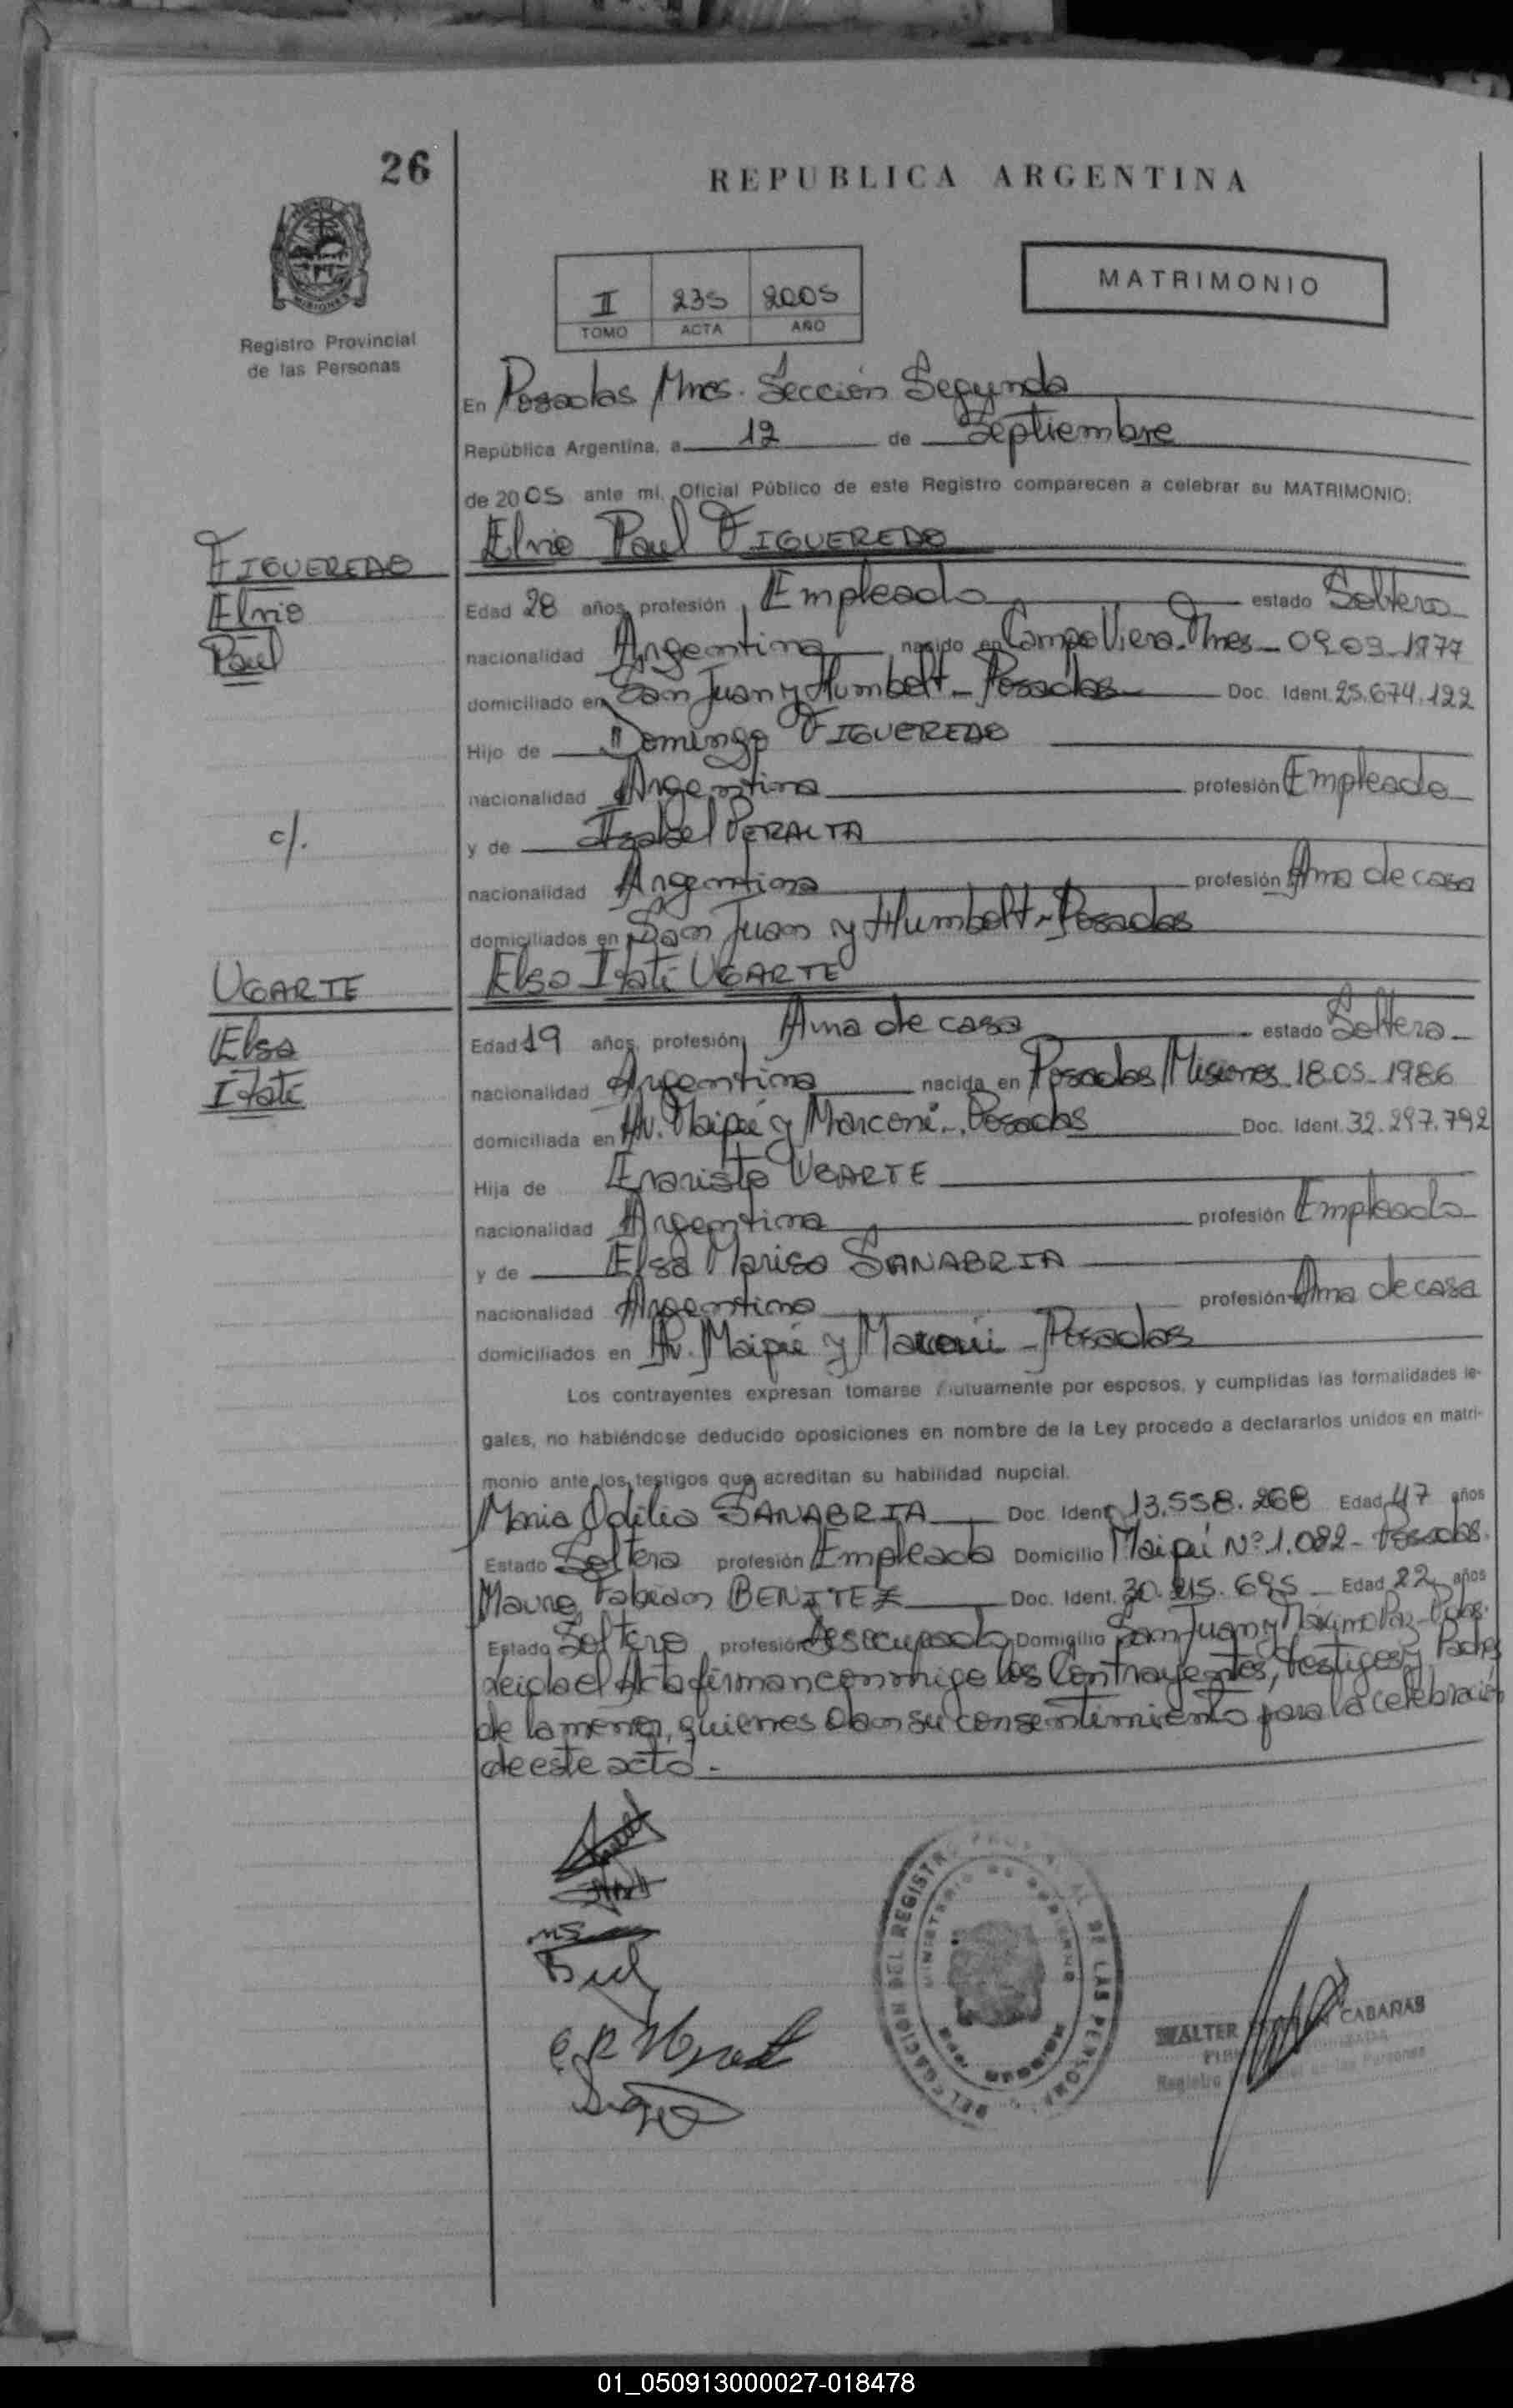 26
REPUBLICA ARGENTINA
MATRIMONIO
II 235 2005
TOMO ACTA AÑO
Registro Provincial
de las Personas
En Posadas Mnes. Sección Segunda
República Argentina, a 12 de Septiembre
de 2005 ante mi, Oficial Público de este Registro comparecen a celebrar su MATRIMONIO:
FIGUEREDO
Elvio
Paul
Elvio Paul FIGUEREDO
Edad 28 años, profesión Empleado estado Soltero
nacionalidad Argentina nacido en Campo Viera. Mnes - 09.03.1977
domiciliado en San Juan y Humbolt - Posadas Doc. Ident. 25.674.122
Hijo de Domingo FIGUEREDO
nacionalidad Argentina profesión Empleado
c/.
y de Isabel PERALTA
nacionalidad Argentina profesión Ama de casa
domiciliados en San Juan y Humbolt - Posadas
UGARTE
Elsa
Itatí
Elsa Itatí UGARTE
Edad 19 años, profesión Ama de casa estado Soltera
nacionalidad Argentina nacida en Posadas Misiones 18.05.1986
domiciliada en Av. Maipú y Marconi - Posadas Doc. Ident. 32.297.792
Hija de Evaristo UGARTE
nacionalidad Argentina profesión Empleado
y de Elsa Marisa SANABRIA
nacionalidad Argentina profesión Ama de casa
domiciliados en Av. Maipú y Marconi - Posadas
Los contrayentes expresan tomarse mutuamente por esposos, y cumplidas las formalidades le-
gales, no habiéndose deducido oposiciones en nombre de la Ley procedo a declararlos unidos en matri-
monio ante los testigos que acreditan su habilidad nupcial.
Maria Odilia SANABRIA Doc. Ident. 13.558.268 Edad 47 años
Estado Soltera profesión Empleada Domicilio Maipú Nº 1.082 - Posadas.
Mauro Fabian BENITEZ Doc. Ident. 30.215.695 Edad 22 años
Estado Soltero profesión Desocupado Domicilio San Juan y Máximo Paz - Pdas.
Leida el Acta firman conmigo los Contrayentes, testigos y Padres
de la menor, quienes dan su consentimiento para la celebración
de este acto.-
DELEGACION DEL REGISTRO PROVINCIAL DE LAS PERSONAS
MINISTERIO DE GOBIERNO
WALTER CABAÑAS
Registro de las Personas
01_050913000027-018478